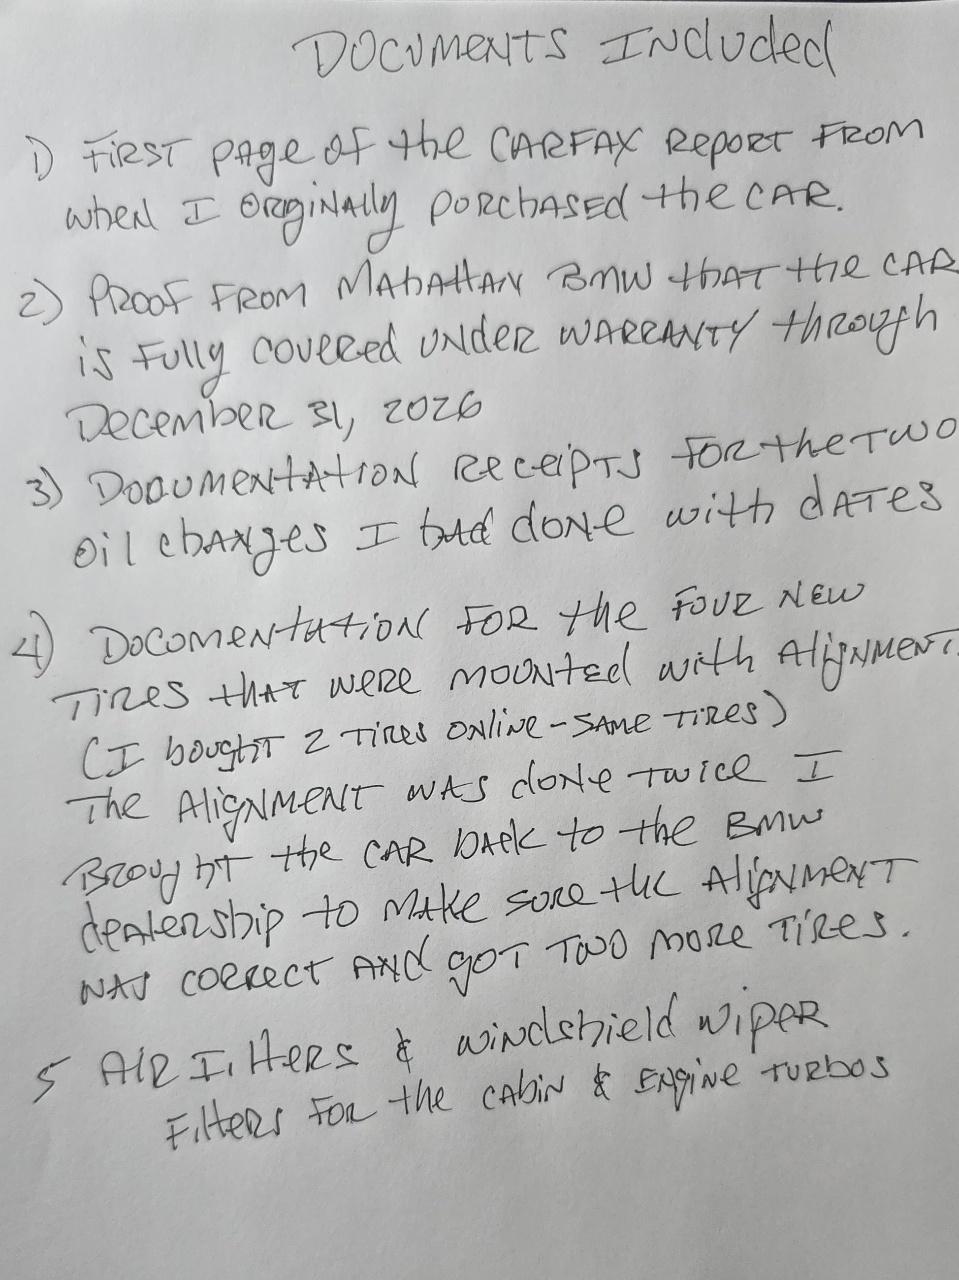 DOCUMENTS INCluded
1) FIRST PAge OF the CARFAX RePORT FROM
when I ORIgiNAlly PURchASED the CAR.
2) PROOF FROM MAhAttAN BMW thAT the CAR
is Fully COVERED UNdER WARRANTY through
DecemBER 31, 2026
3) DOCUMENtAtION ReceipTS FOR the TWO
Oil chANges I hAd dONe with dATES
4) DOCOMENtAtION FOR the FOUR NEW
TIRES thAT weRe MOUNted with AligNMENT.
(I bought 2 TIReS ONliNe - SAMe TIRES)
The AligNMENT WAS doNe TWICe I
BROUghT the CAR bAck to the BMW
deAleRship to MAKe SURe the AligNMENT
WAS CORRECT ANd goT TWO MORe TIReS.
5 AIR FilteRS & wiNdshield wipeR
FilteRS FOR the CAbiN & ENgiNe TURbOS